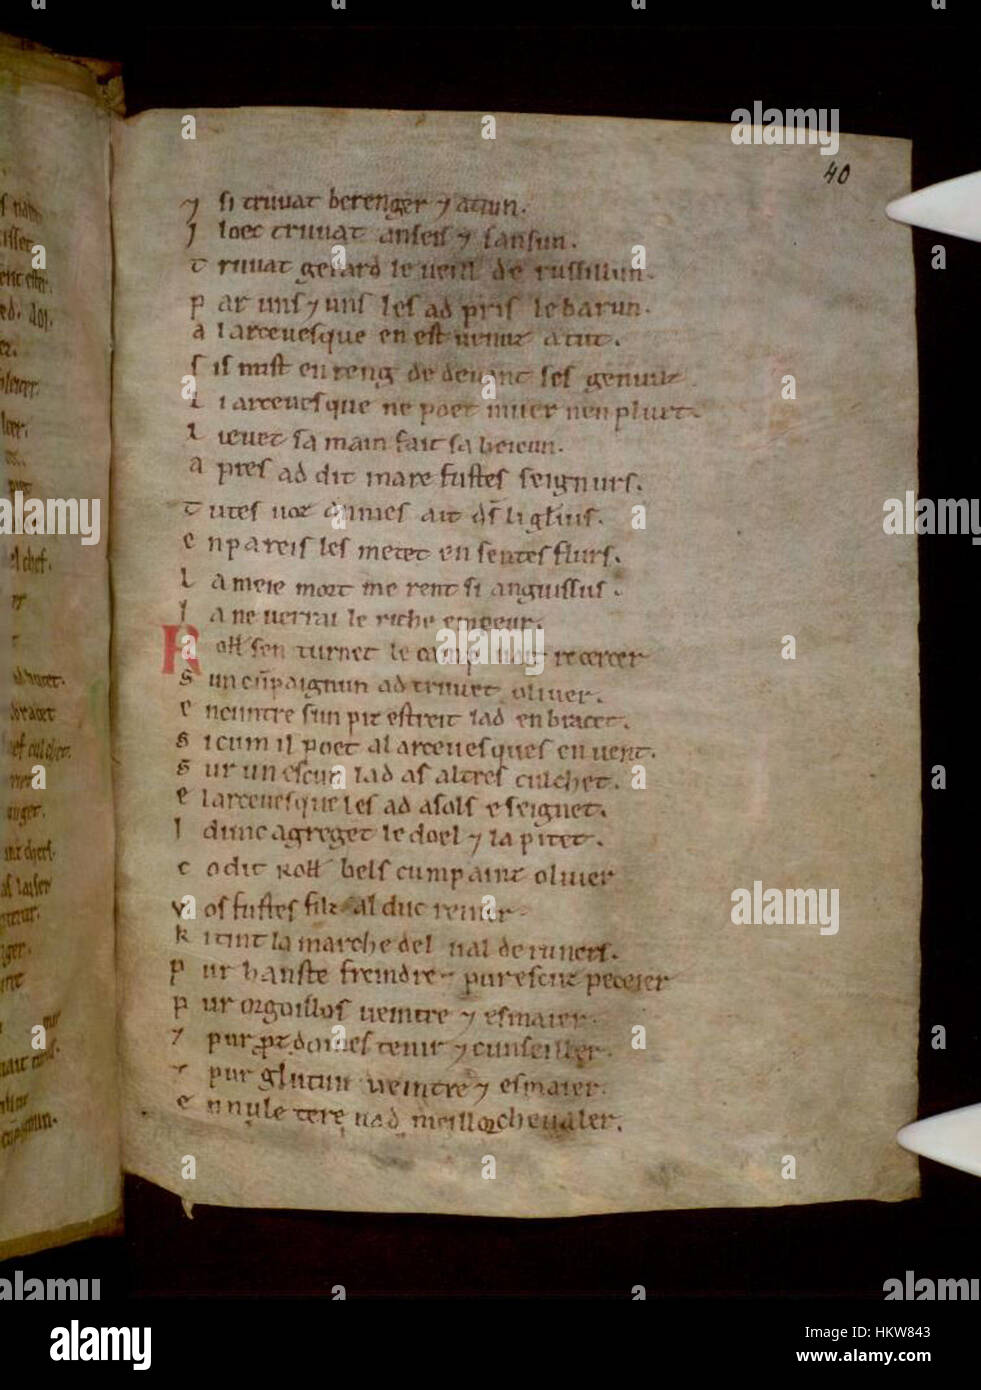 40
⁊ si truvat berenger ⁊ atuin.
J loec truvat anseis ⁊ sansun.
T ruvat gerard le veill de russillun.
p ar uns ⁊ uns les ad pris le barun.
a larcevesque en est venuz atut.
s is mist en reng de devant ses genuilz
l i arcevesque ne poet muer nen plurt.
l ievet sa main fait sa beicun.
a pres ad dit mare fustes seignurs.
T utes voz anmes ait ds̄ li glius.
e n pareis les metet en sentes flurs.
l a meie mort me rent si anguissus.
J a ne verrai le riche empeur.
Roll̄ sen turnet le camp vait recercer
s un cūpaignun ad truvet oliver.
e ncuntre sun piz estreit lad enbracet.
s icum il poet al arcevesques en vent.
s ur un escut lad as altres culchet.
e larcevesque les ad asols e seignet.
I dunc agreget le doel ⁊ la pitet.
c o dit Roll̄ bels cumpainz oliver
v os fustes filz al duc reiner
k i tint la marche del val de runers.
p ur hanste freindre ⁊ pur escuz peceier
p ur orgoillos veintre ⁊ esmaier.
⁊ pur pzdomes tenir ⁊ cunseiller.
⁊ pur glutun veintre ⁊ esmaier.
e n nule tere nad meillor chevaler.
a alamy stock photo
alamy
Image ID: HKW843
www.alamy.com